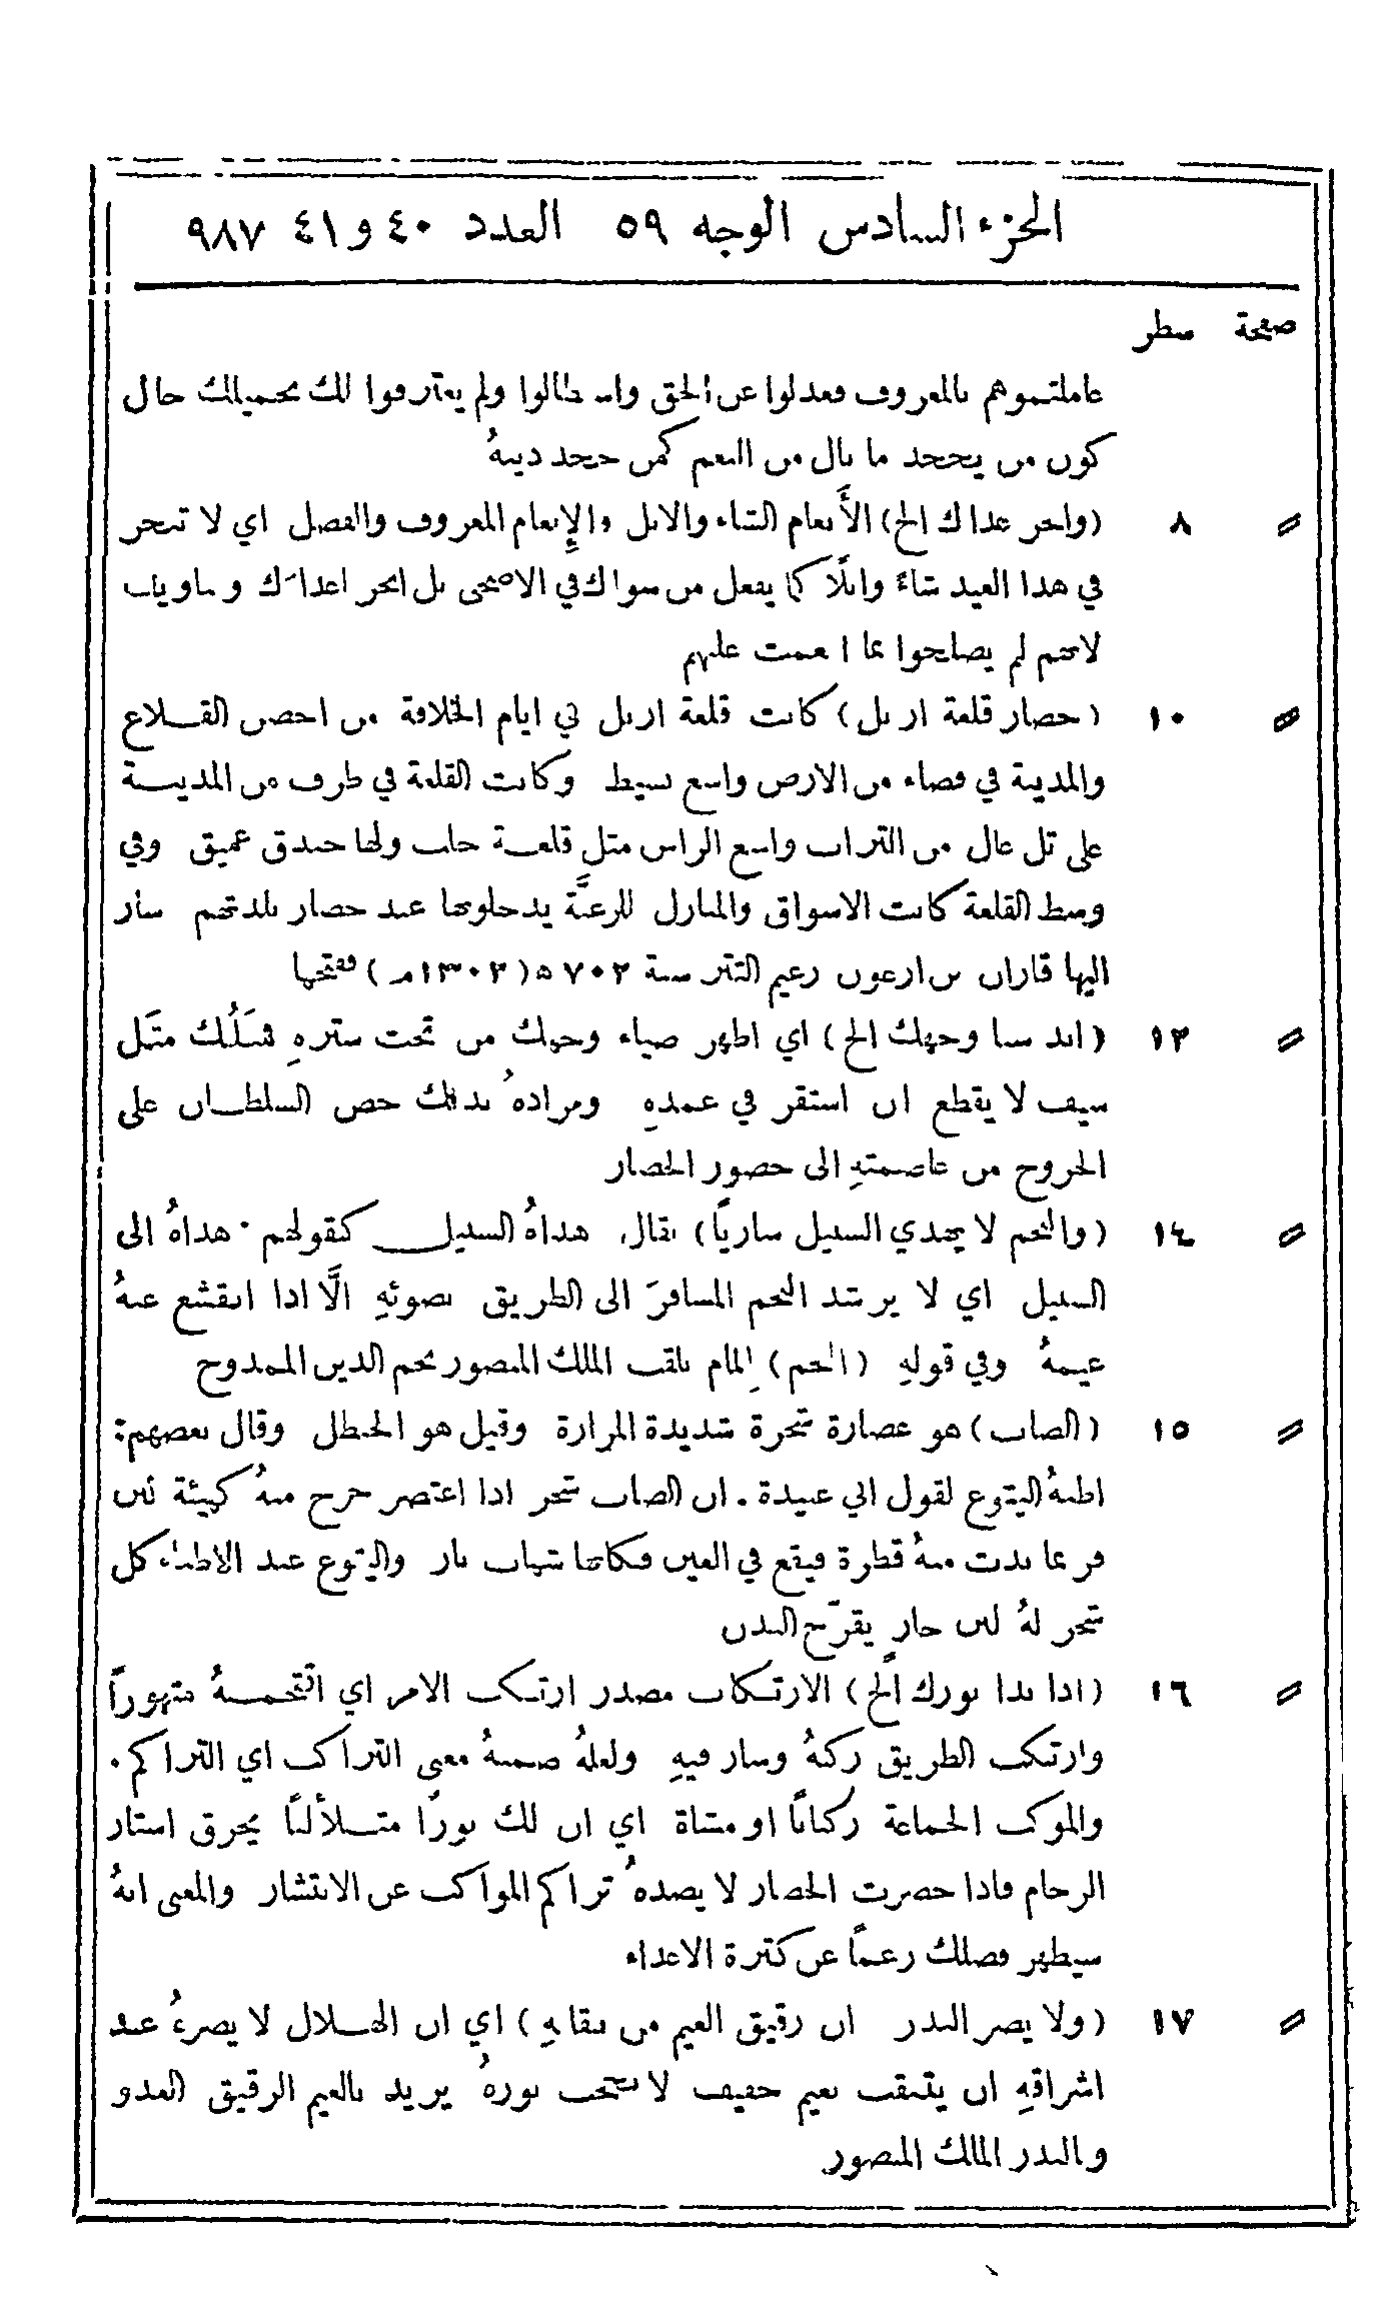 الجزء السادس الوجه ٥٩ العدد ٤٠ و٤١ ٩٨٧
صفحة سطر
عاملتموهم بالمعروف فعدلوا عن الحق واستطالوا ولم يعترفوا لك بجميلك حال
كون من يجحد ما نال من النعم كمن جحد دينهُ
〃 ٨ (وانحر عداك الخ) الأَنعام الشاء والابل والإِنعام المعروف والفضل اي لا تنحر
في هذا العيد شاءً وابلًا كما يفعل من سواك في الاضحى بل انحر اعداءَك وساويات
لانهم لم يصلحوا بما انعمت عليهم
〃 ١٠ (حصار قلعة اربل) كانت قلعة اربل في ايام الخلافة من احصن القـلاع
والمدينة في فضاء من الارض واسع بسيط وكانت القلعة في طرف من المدينـة
على تل عال من التراب واسع الراس مثل قلعـة حلب ولها خندق عميق وفي
وسط القلعة كانت الاسواق والمنازل للرعيَّة يدخلونها عند حصار بلدتهم سار
اليها قازان بن ارغون زعيم التتر سنة ٧٠٢ه (١٣٠٢م) ففتحها
〃 ١٢ (ابد سنا وجهك الخ) اي اظهر ضياء وجهك من تحت سترهِ فمَثَلُك مثَل
سيف لا يقطع ان استقر في غمدهِ ومرادهُ بذلك حض السلطـان على
الخروج من عاصمتهِ الى حضور الحصار
〃 ١٤ (والنجم لا يهدي السبيل ساريًا) يقال، هداهُ السبيل كقولهم. هداهُ الى
السبيل اي لا يرشد النجم المسافرَ الى الطريق بضوئهِ الَّا اذا انقشع عنهُ
غيمهُ وفي قولهِ (النجم) إِلمام بلقب الملك المنصور نجم الدين الممدوح
〃 ١٥ (الصاب) هو عصارة شجرة شديدة المرارة وقيل هو الحنظل وقال بعضهم:
اظنهُ اليتوع لقول ابي عبيدة. ان الصاب شجر اذا اعتصر خرج منهُ كهيئة لبن
فربما ندت منهُ قطرة فيقع في العين فكانها شهاب نار واليتوع عند الاطباء كل
شجر لهُ لبن حارٍ يقرّح البدن
〃 ١٦ (اذا بدا نورك الخ) الارتـكاب مصدر ارتـكب الامر اي اقتحمـهُ متهورًا
وارتـكب الطريق ركبهُ وسار فيهِ ولعلهُ ضمنهُ معنى التراكب اي التراكم.
والموكب الجماعة ركبانًا او مشاة اي ان لك نورًا متـلألئًا يخرق استار
الزحام فاذا حضرت الحصار لا يصدهُ تراكم المواكب عن الانتشار والمعنى انهُ
سيظهر فضلك رغمًا عن كثرة الاعداء
〃 ١٧ (ولا يضر البدر ان رقيق الغيم من نقابهِ) اي ان الهـلال لا يضرهُ عند
اشراقهِ ان يتنقب بغيم خفيف لا يحجب نورهُ يريد بالغيم الرقيق العدو
والبدر الملك المنصور